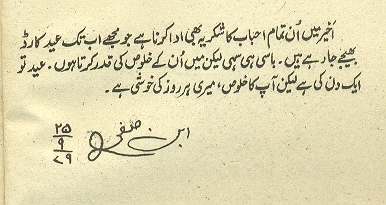 آخیر میں اُن تمام احباب کا شکریہ بھی ادا کرنا ہے جو مجھے اب تک عید کارڈ
بھیجے جا رہے ہیں۔ باسی ہی سہی لیکن میں اُن کے خلوص کی قدر کرتا ہوں۔ عید تو
ایک دن کی ہے لیکن آپ کا خلوص، میری ہر روز کی خوشی ہے۔
ابن صفی
۲۵
۹
۷۹